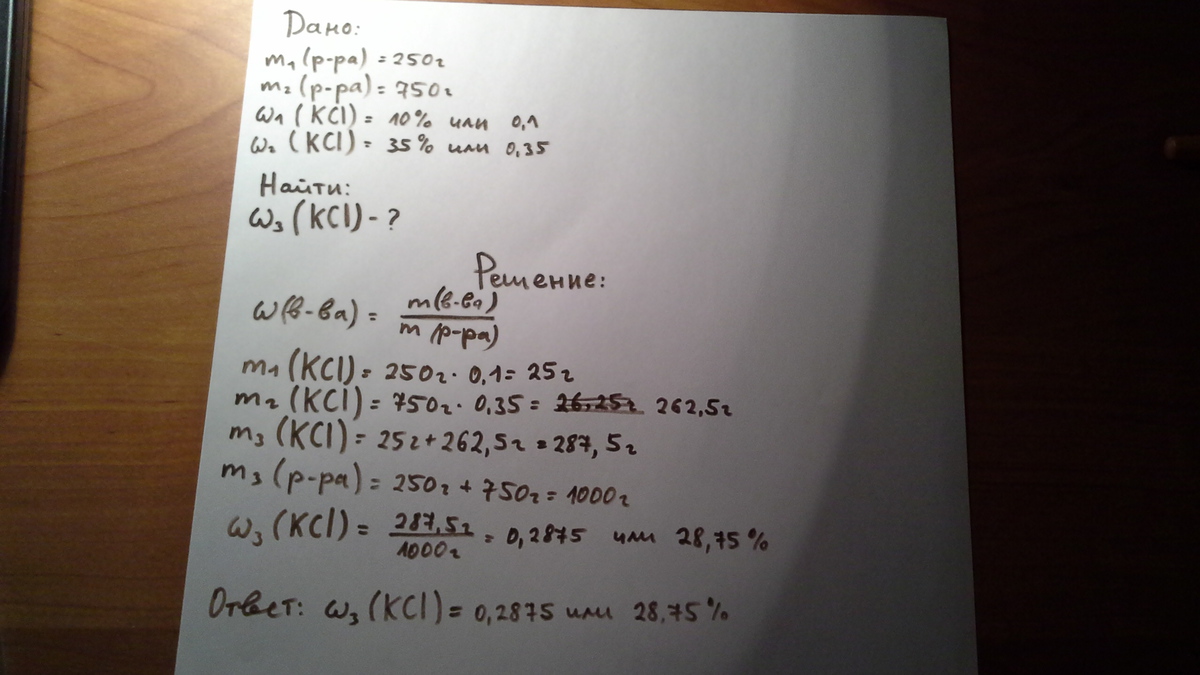 Дано:
m₁(р-ра) = 250г
m₂(р-ра) = 750г
ω₁(KCl) = 10% или 0,1
ω₂(KCl) = 35% или 0,35
Найти:
ω₃(KCl) - ?
Решение:
ω(в-ва) = m(в-ва) / m(р-ра)
m₁(KCl) = 250г · 0,1 = 25г
m₂(KCl) = 750г · 0,35 = 26,25г 262,5г
m₃(KCl) = 25г + 262,5г = 287,5г
m₃(р-ра) = 250г + 750г = 1000г
ω₃(KCl) = 287,5г / 1000г = 0,2875 или 28,75%
Ответ: ω₃(KCl) = 0,2875 или 28,75%